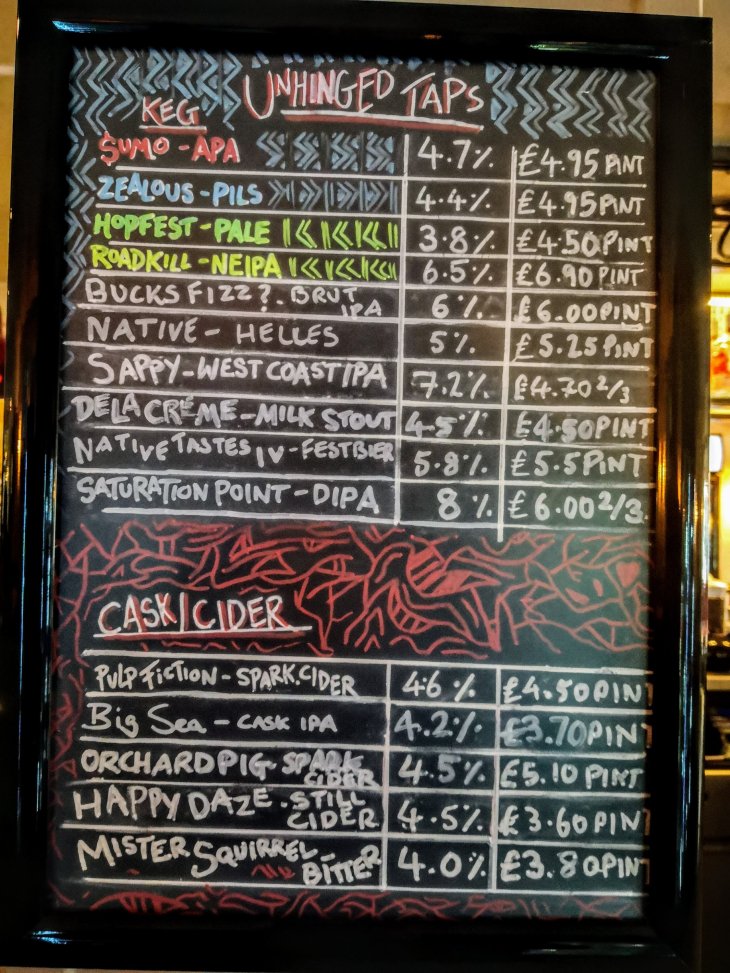 UNHINGED TAPS
KEG
SUMO - APA 4.7% £4.95 PINT
ZEALOUS - PILS 4.4% £4.95 PINT
HOPFEST - PALE 3.8% £4.50 PINT
ROADKILL - NEIPA 6.5% £6.90 PINT
BUCKS FIZZ?. BRUT IPA 6% £6.00 PINT
NATIVE - HELLES 5% £5.25 PINT
SAPPY - WEST COAST IPA 7.2% £4.70 2/3
DE LA CRÉME - MILK STOUT 4.5% £4.50 PINT
NATIVE TASTES IV - FESTBIER 5.8% £5.5 PINT
SATURATION POINT - DIPA 8% £6.00 2/3
CASK/CIDER
PULP FICTION - SPARK. CIDER 4.6% £4.50 PINT
BIG SEA - CASK IPA 4.2% £3.70 PINT
ORCHARD PIG - SPARK CIDER 4.5% £5.10 PINT
HAPPY DAZE - STILL CIDER 4.5% £3.60 PINT
MISTER SQUIRREL - BITTER 4.0% £3.80 PINT